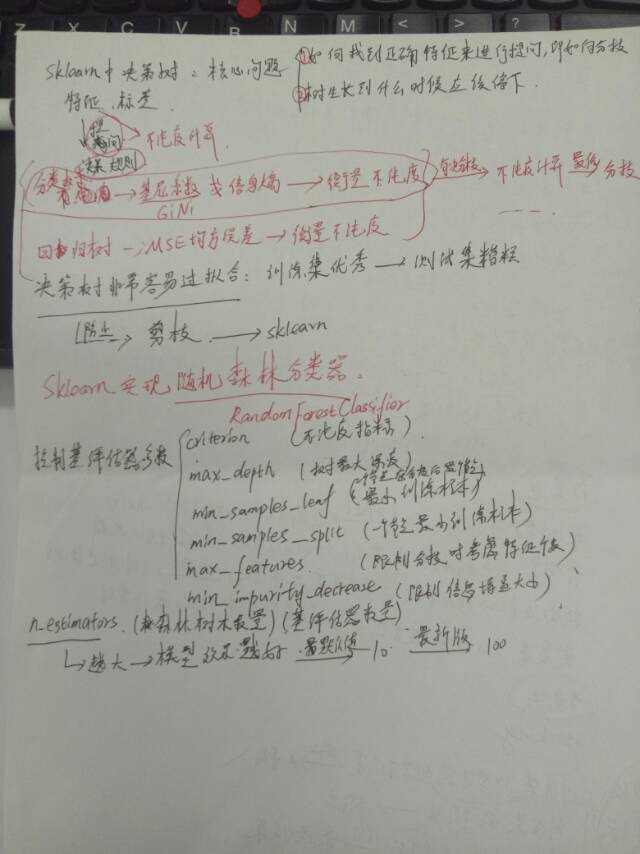 Z X C V B N M < >
Sklearn中决策树:核心问题 ①如何找到正确特征来进行提问,即如何分枝
②树生长到什么时候应该停下
特征,标签
提问 不纯度计算
决策规则
分类树 → 基尼系数 或 信息熵 → 衡量 不纯度 → 不纯度计算 最低 分枝
GiNi
回归树 → MSE 均方误差 → 衡量 不纯度
决策树非常容易过拟合:训练集优秀 → 测试集糟糕
防止 → 剪枝 → sklearn
Sklearn 实现 随机森林分类器.
RandomForestClassifier
控制基评估器参数 criterion (不纯度指标)
max_depth (树最大深度)
min_samples_leaf (最小训练样本)
min_samples_split (一个节点最少训练样本)
max_features (限制分枝时考虑特征个数)
min_impurity_decrease (限制信息增益大小)
n_estimators. (森林树木数量) (基评估器数量)
越大 → 模型效果越好 默认值 10. 最新版 100